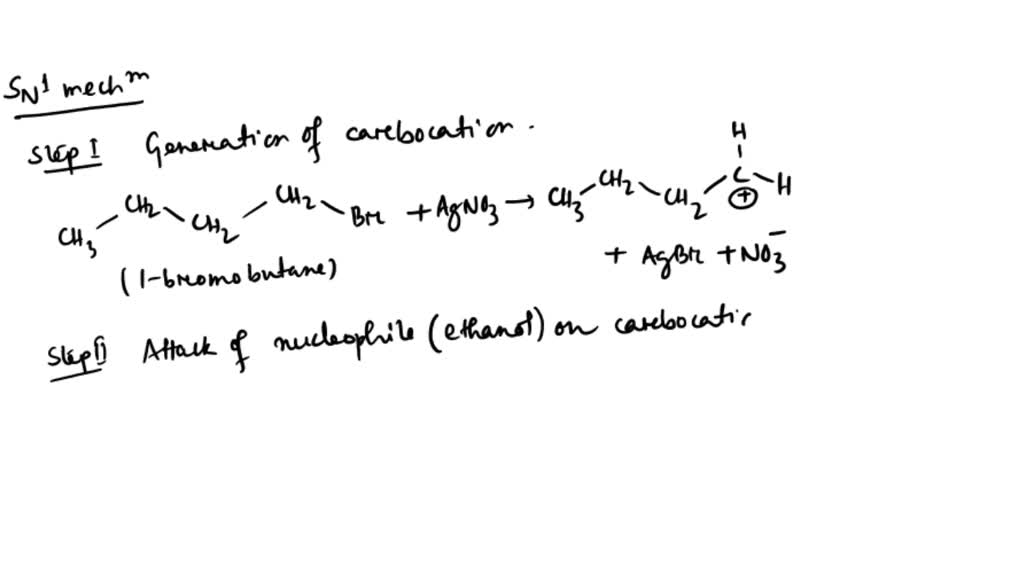 SN1 mechm
Step I Generation of carbocation.
CH3 CH2 CH2 CH2 Br + AgNO3 → CH3 CH2 CH2 C⊕ H H
(1-bromobutane)
+ AgBr + NO3-
Step II Attack of nucleophile (ethanol) on carbocatio